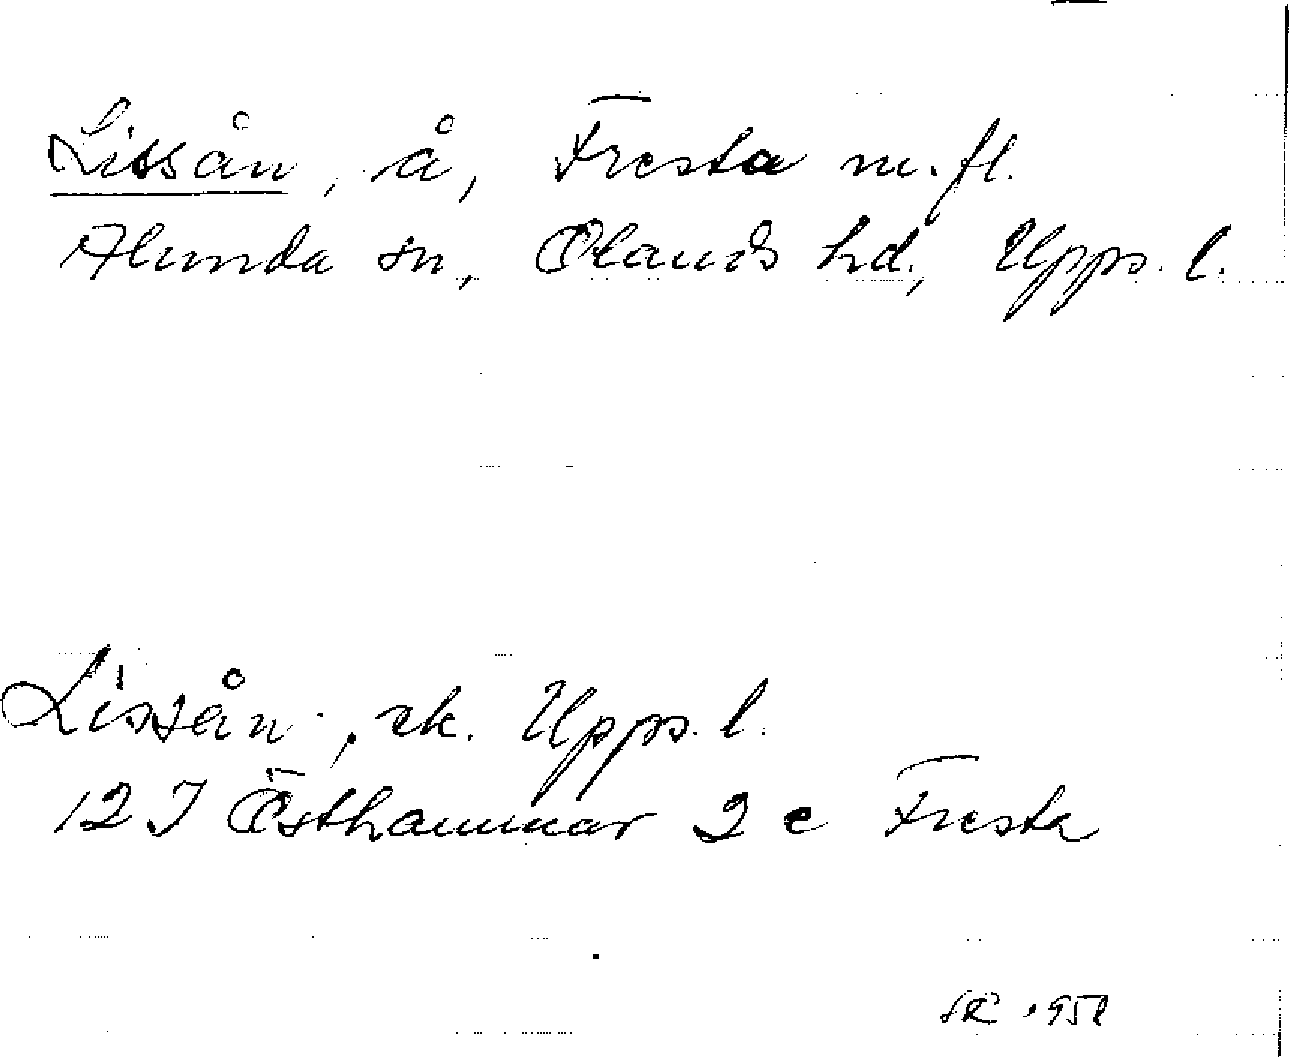 Lissån, å, Fresta m.fl.
Alunda sn, Olands hd., Upps. l.
Lissån, ek. Upps. l.
12I Östhammar 2 e Fresta